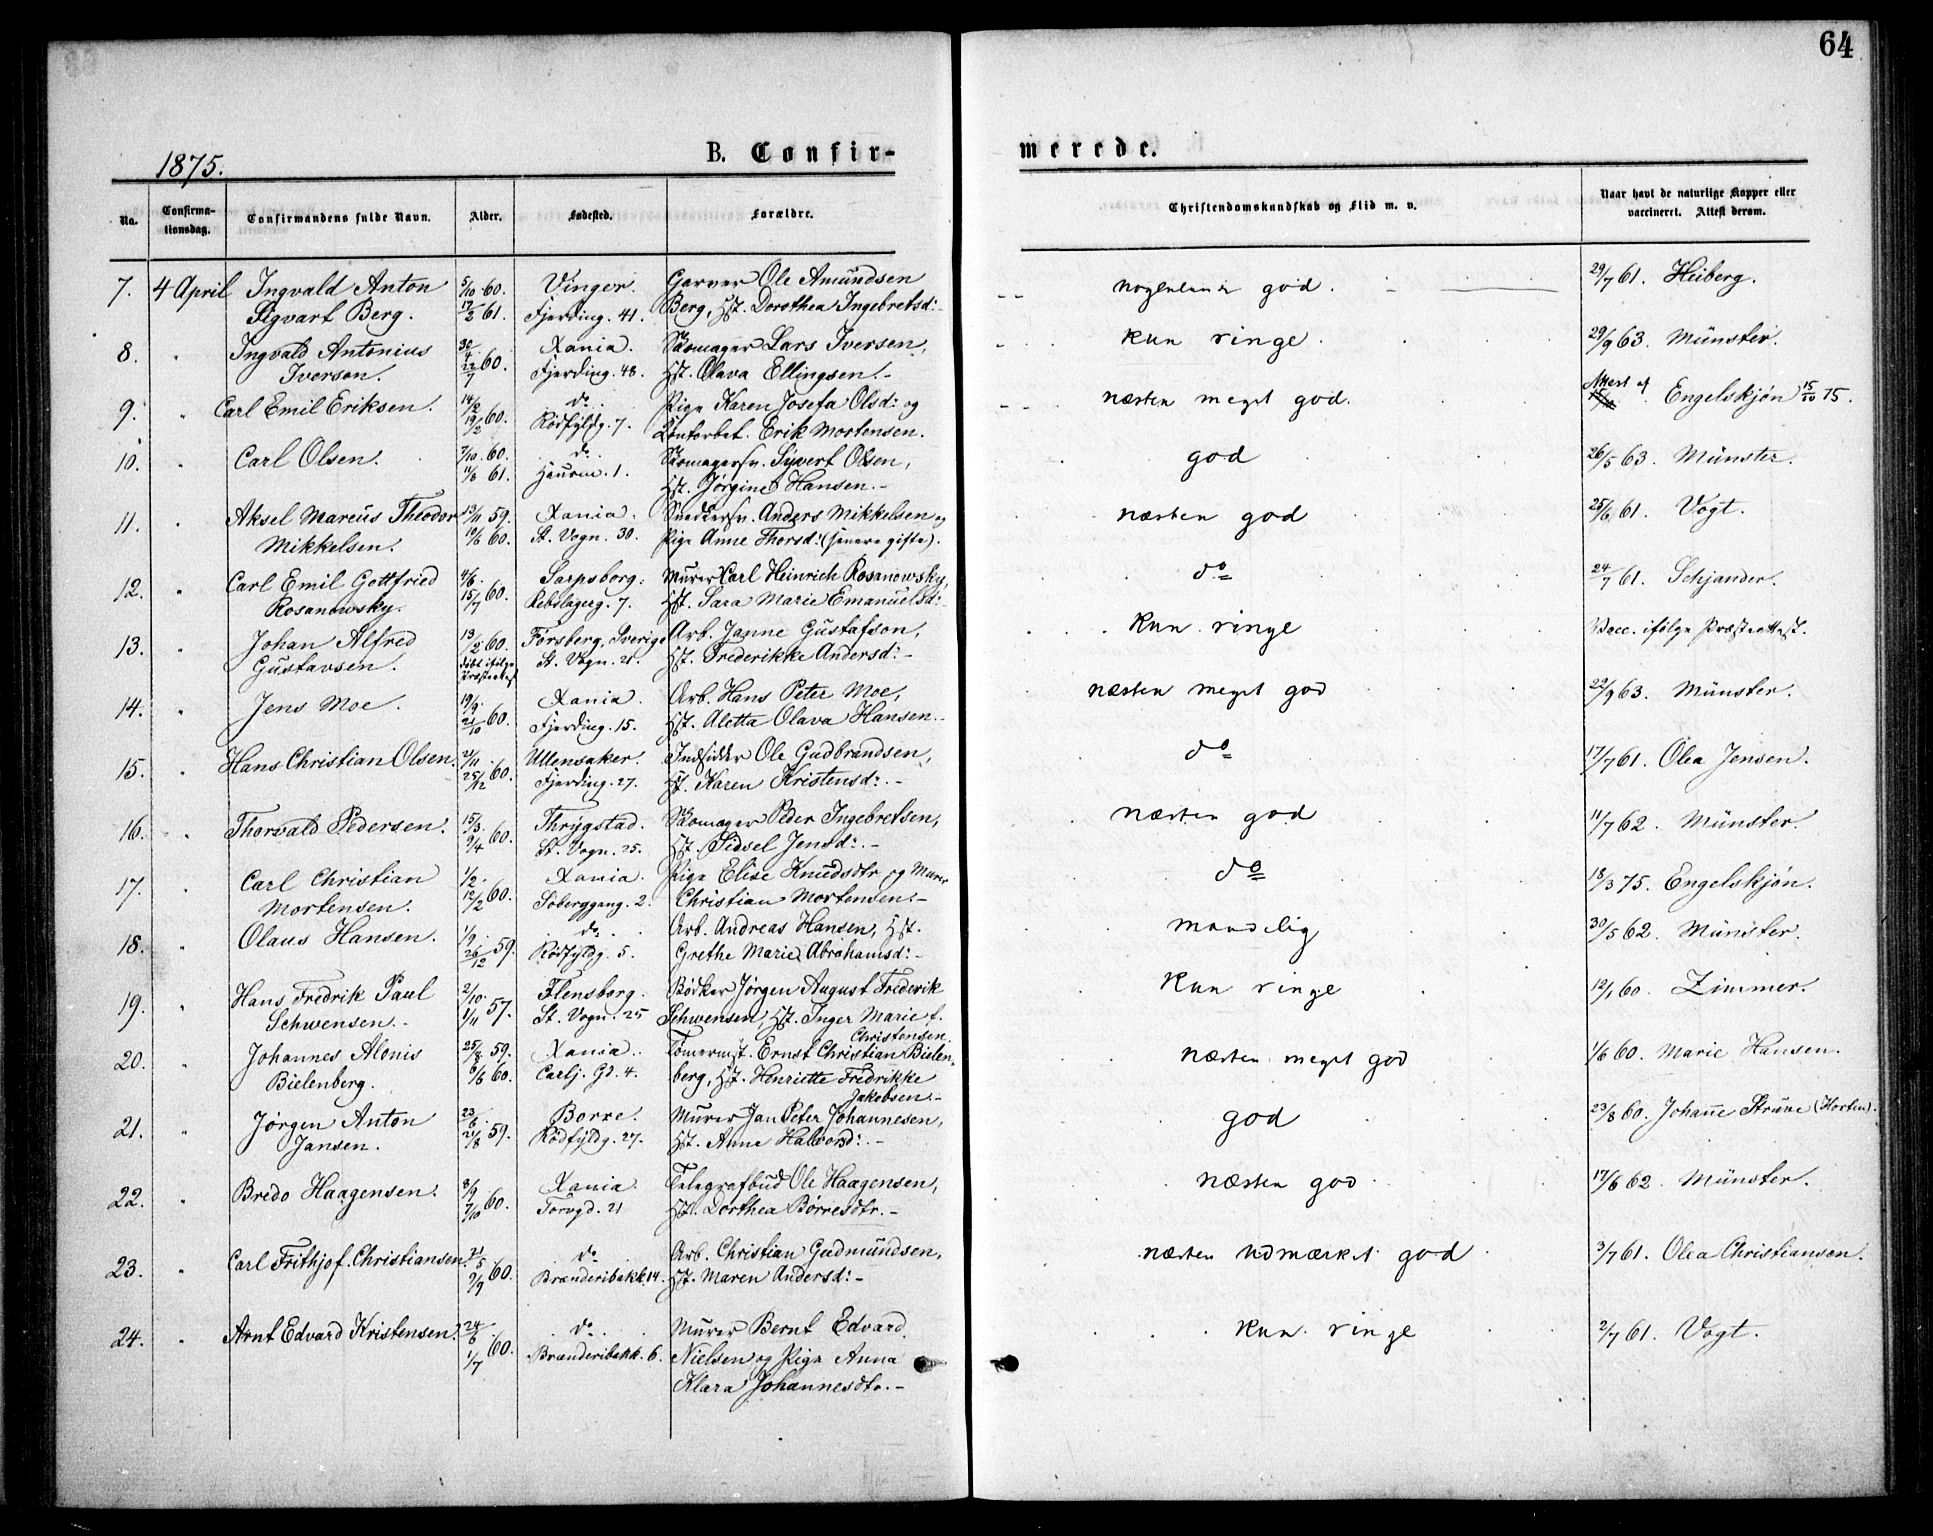 64
1875.
B. Confir-
merede.
No.
Confirma-
tionsdag.
Confirmandens fulde Navn.
Alder.
Fødested.
Forældre.
Christendomskundskab og Flid m. v.
Naar havt de naturlige Kopper eller
vaccineret. Attest derom.
7. 4 April Ingvald Anton 5/10 60. Vinger. Garver Ole Amundsen god. 29/7 61. Heiberg.
Sigvart Berg. 17/2 61. Fjerding. 41. Berg, Hst. Dorothea Ingebretsd:
8. " Ingvald Antonius 30/4 Xania. Skomager Lars Iversen, kun ringe. 29/9 63. Münster.
Iversen. 22/7 60. Fjerding. 48. Hst. Olava Ellingsen.-
9. " Carl Emil Eriksen. 14/2 do. Pige Karen Josefa Olsd: og næsten meget god. Attest af Engelskjøn 15/10 75.
19/2 60. Rødfyldg. 7. Erik Mortensen.
10. " Carl Olsen. 7/10 60. do. Skomagersv. Syvert Olsen, god 26/5 63. Münster.
11/6 61. 1. Hst. Jørgine Hansen.-
11. " Aksel Marcus Theodor 13/11 59. Xania. Snedkersv. Anders Mikkelsen og næsten god 25/6 61. Vogt.
Mikkelsen. 10/6 60. St. Vogn. 30. Pige Anne Thorsd: (senere gifte).
12. " Carl Emil Gottfried 4/6 Sarpsborg. Murer Carl Heinrich Rosanowsky, do 24/7 61. Schjander.
Rosanowsky. 15/7 60. Rebslagerg. 7. Hst. Sara Marie Emanuelsd:-
13. " Johan Alfred 13/2 60. Forsberg, Sverige Arb. Janne Gustafson, kun ringe Vacc. ifølge Præsteattest.
Gustavsen. Døbt ifølge Præsteattest St. Vogn. 21. Hst. Frederikke Andersd:-
14. " Jens Moe. 19/9 Xania. Arb. Hans Peter Moe, næsten meget god 22/9 63. Münster.
21/10 60. Fjerding. 15. Hst. Aletta Olava Hansen.-
15. " Hans Christian Olsen. 21/11 Ullensaker. Indsidder Ole Gudbrandsen, do 17/7 61. Olea Jensen.
25/12 60. Fjerding. 27. Hst. Karen Kristensd:.-
16. " Thorvald Pedersen. 15/3 Thrygstad. Skomager Peder Ingebretsen, næsten god 11/7 62. Münster.
9/4 60. St. Vogn. 25. Hst. Sidsel Jensd:.-
17. " Carl Christian 1/2 Xania. Pige Elise Knudsdtr og Murer do 18/3 75. Engelskjøn.
Mortensen. 12/2 60. Søberggang. 2. Christian Mortensen.-
18. " Olaus Hansen. 1/9 do. Arb. Andreas Hansen, Hst. maadelig 30/5 62. Münster.
26/12 59. Rødfyldg. 5. Grethe Marie Abrahamsd:-
19. " Hans Fredrik Paul 2/10 Flensborg. Bødker Jørgen August Frederik Kun ringe 12/1 60. Zimmer.
Schwensen.- 1/11 57. St. Vogn. 25 Schwensen, Hst. Inger Marie f.
Christensen.
20. " Johannes Alonis 25/8 59. Xania. Tømermst. Ernst Christian Bielen- næsten meget god 1/6 60. Marie Hansen.
Bielenberg. 6/6 60. Carlj. Gd. 4. berg, Hst. Henriette Fredrikke
Jakobsen.-
21. " Jørgen Anton 23/6 Borre. Murer Jan Peter Johannesen, god 23/8 60. Johanne Strüve (Horten).
Jansen. 21/8 59. Rødfyldg. 27. Hst. Anne Halvorsd:.-
22. " Bredo Haagensen. 8/9 Xania Telegrafbud Ole Haagensen, Næsten god. 17/6 62. Münster.
7/10 60. Torvgd. 21 Hst. Dorthea Børresdtr.-
23. " Carl Frithjof Christiansen. 21/5 do. Arb. Christian Gudmundsen, næsten udmærket god 3/7 61. Olea Christiansen.
9/9 60. Brænderibakk. 14. Hst. Maren Andersd:-
24. " Arnt Edvard Kristensen. 24/6 do. Murer Bernt Edvard kun ringe 2/7 61. Vogt.
1/7 60. Brænderibakk. 6. Nielsen og Pige Anna
Klara Johannesdtr.-